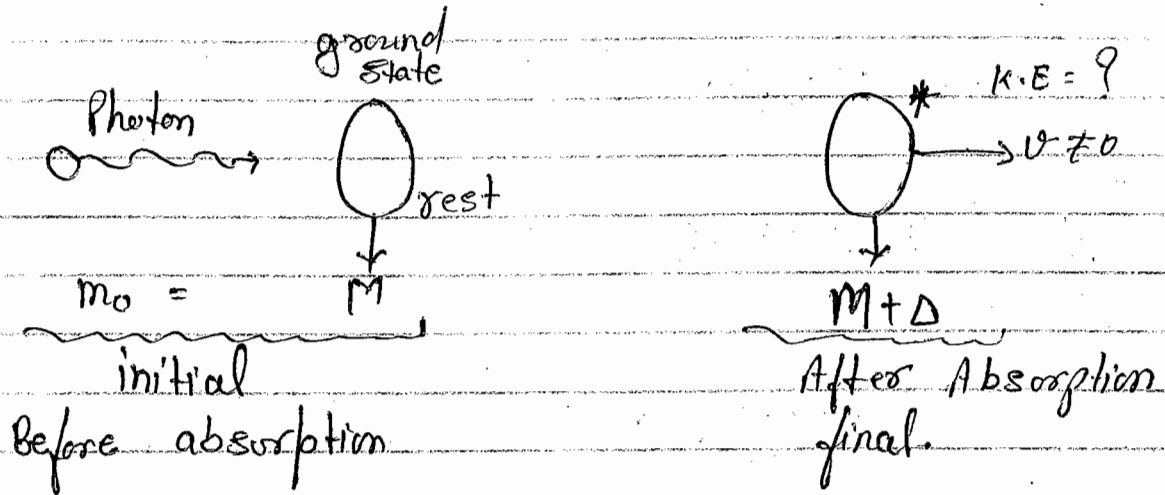 ground
state
Photon
rest
* K.E = ?
v ≠ 0
m₀ = M
M + Δ
initial
Before absorption
After Absorption
final.